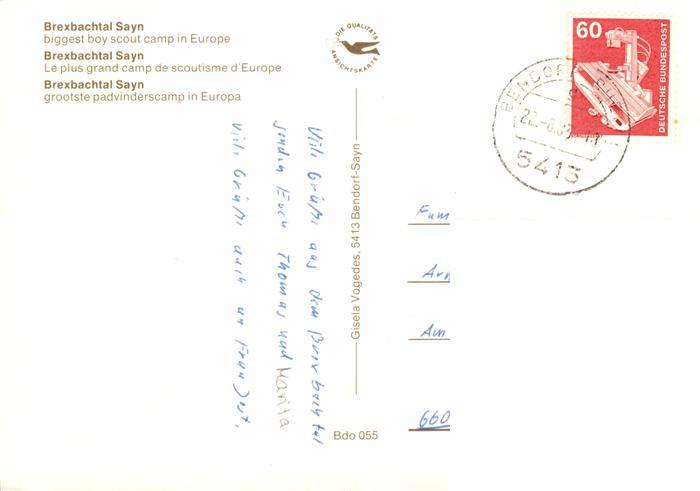 Brexbachtal Sayn
biggest boy scout camp in Europe
Brexbachtal Sayn
Le plus grand camp de scoutisme d'Europe
Brexbachtal Sayn
grootste padvinderscamp in Europa
DIE QUALITÄTS
ANSICHTSKARTE
60
DEUTSCHE BUNDESPOST
BENDORF
5413
Viele Grüße aus dem Brexbachtal
senden Euch Thomas und Marita
Viele Grüße auch an Frau Jost.
Gisela Vogedes, 5413 Bendorf-Sayn
Fam
Am
660
Bdo 055